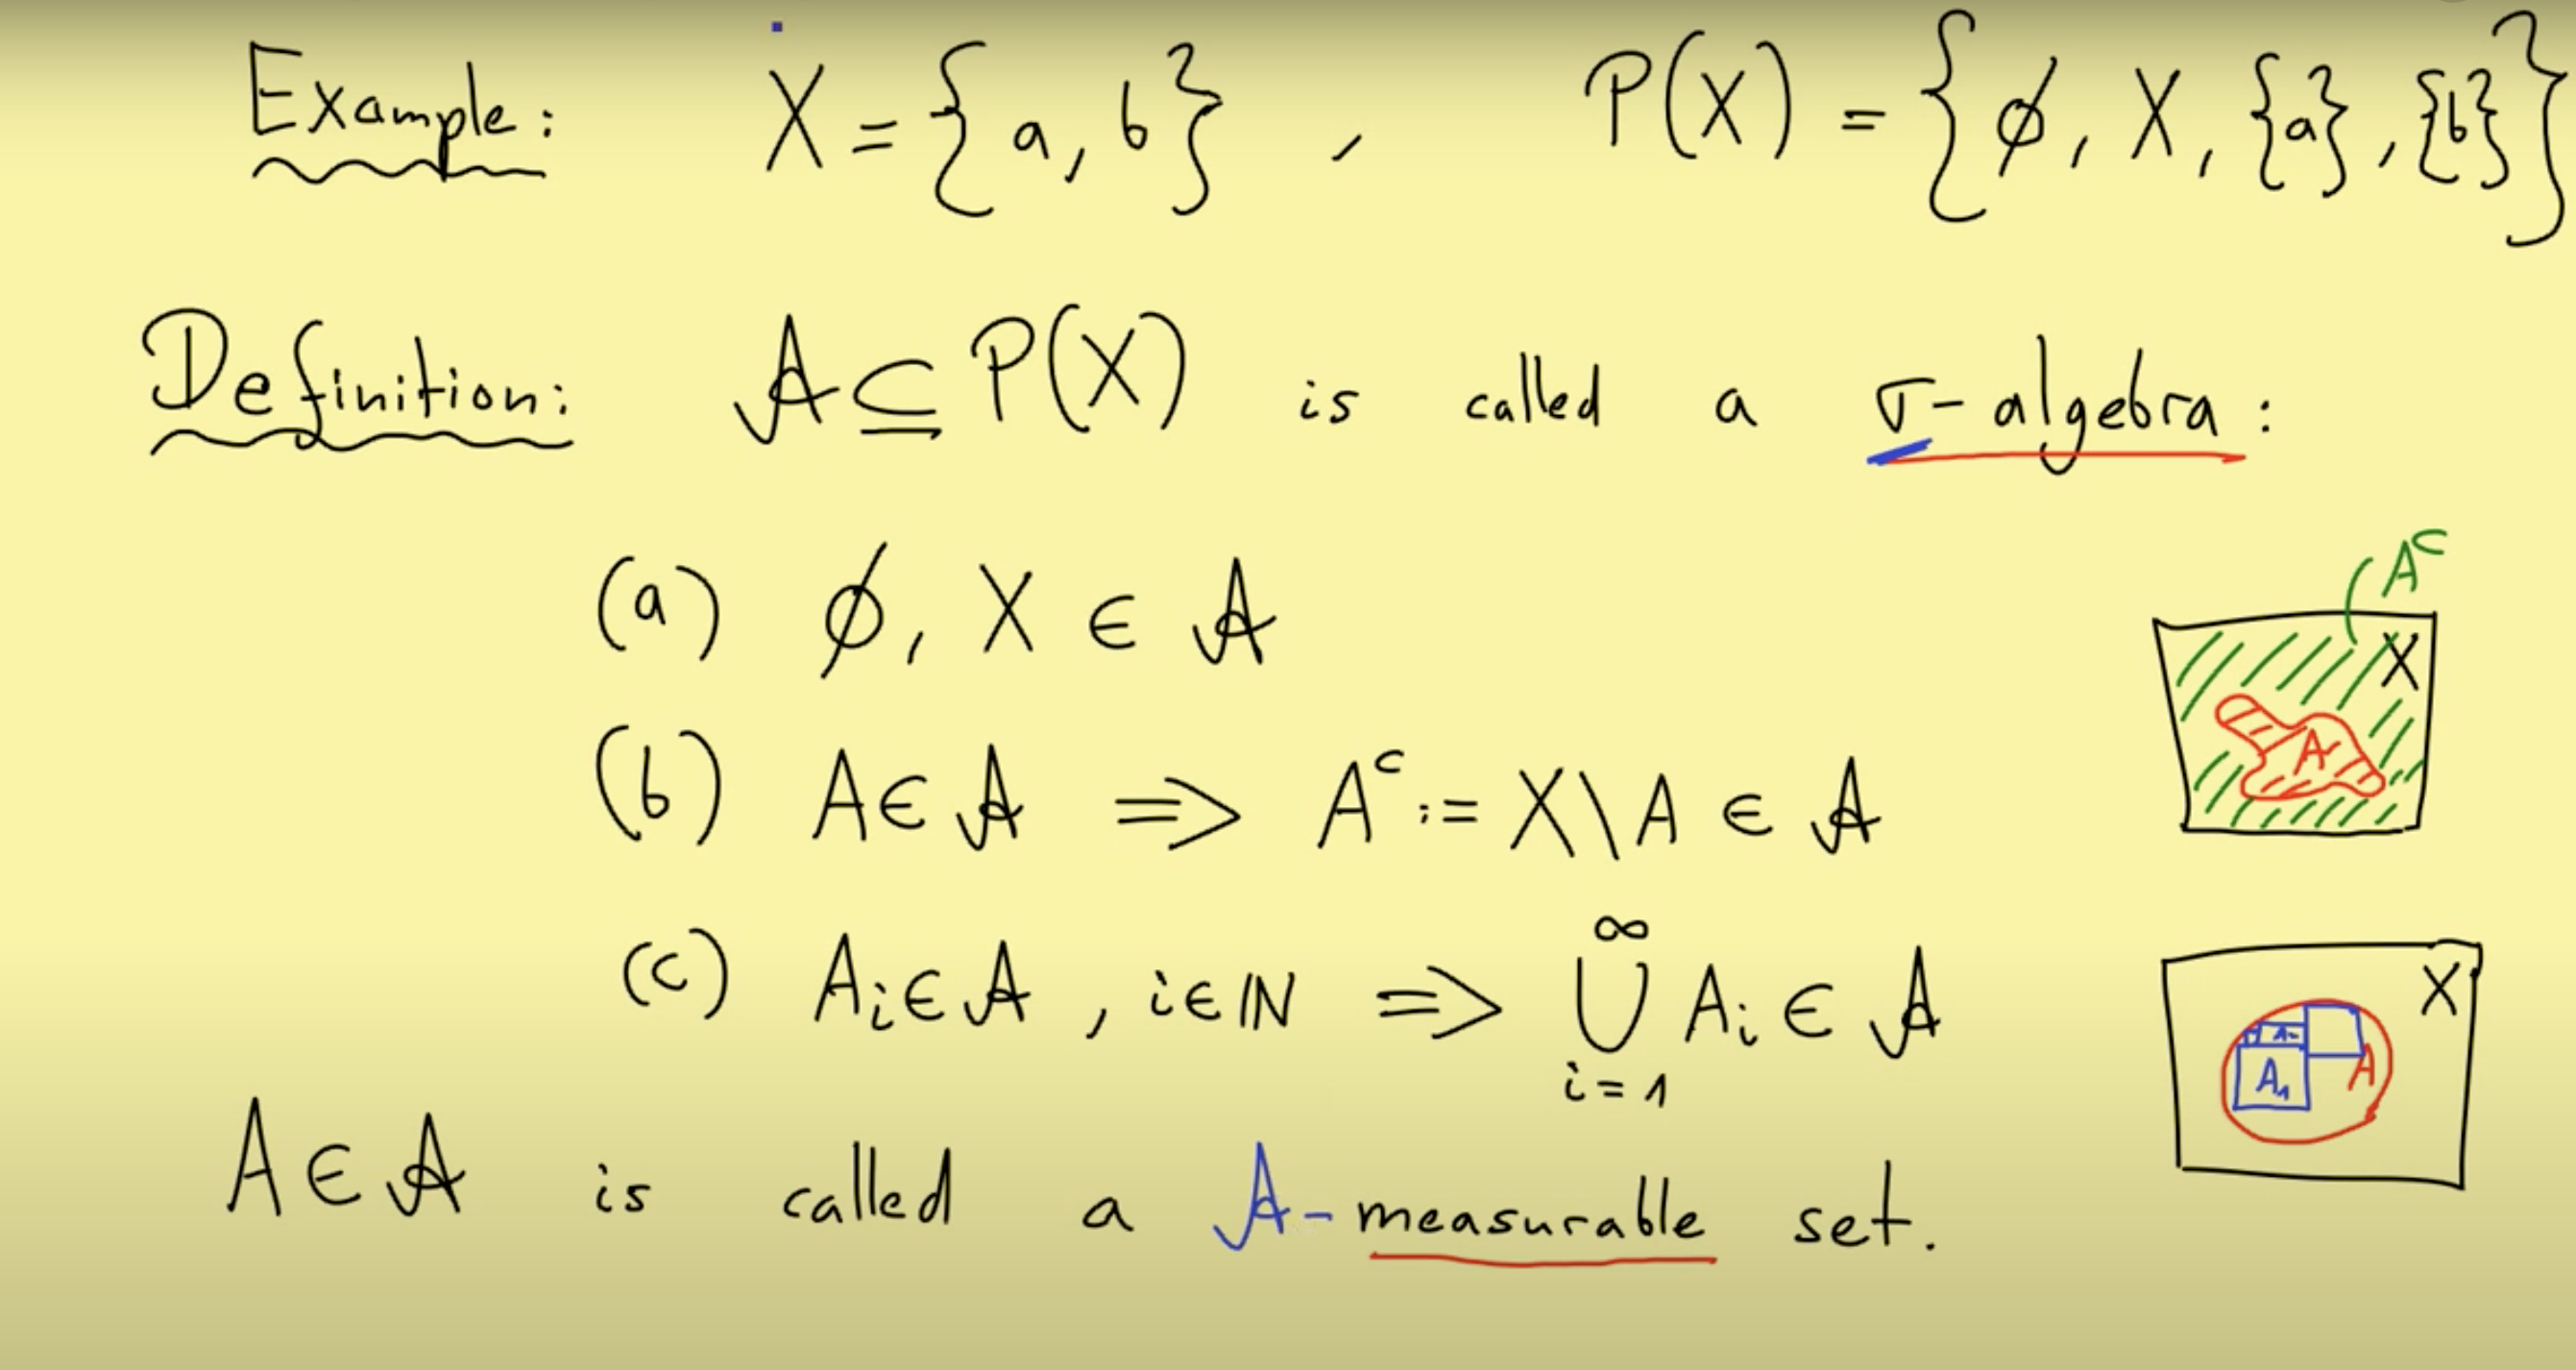 Example: X = {a, b} , P(X) = {ϕ, X, {a}, {b}}
Definition: 𝒜 ⊆ P(X) is called a σ-algebra:
(a) ϕ, X ∈ 𝒜
(b) A ∈ 𝒜 ⇒ Aᶜ := X\A ∈ 𝒜
Aᶜ
X
A
(c) Aᵢ ∈ 𝒜 , i ∈ ℕ ⇒ ⋃_{i=1}^{∞} Aᵢ ∈ 𝒜
X
A₁
A
A ∈ 𝒜 is called a 𝒜-measurable set.